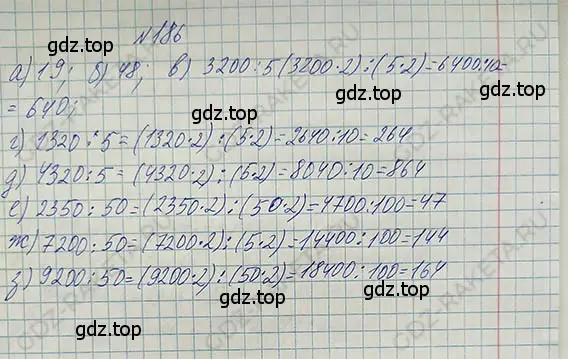 №186
gdz.top
а) 19; б) 48; в) 3200:5(3200·2):(5·2)=6400:10=
= 640;
gdz.top gdz.top
г) 1320:5=(1320·2):(5·2)=2640:10=264
д) 4320:5=(4320·2):(5·2)=8040:10=864
gdz.top
е) 2350:50=(2350·2):(50·2)=4700:100=47
ж) 7200:50=(7200·2):(5·2)=14400:100=144
gdz.top
з) 9200:50=(9200·2):(50·2)=18400:100=164
gdz.top gdz.top
GDZ-RAKETA.RU